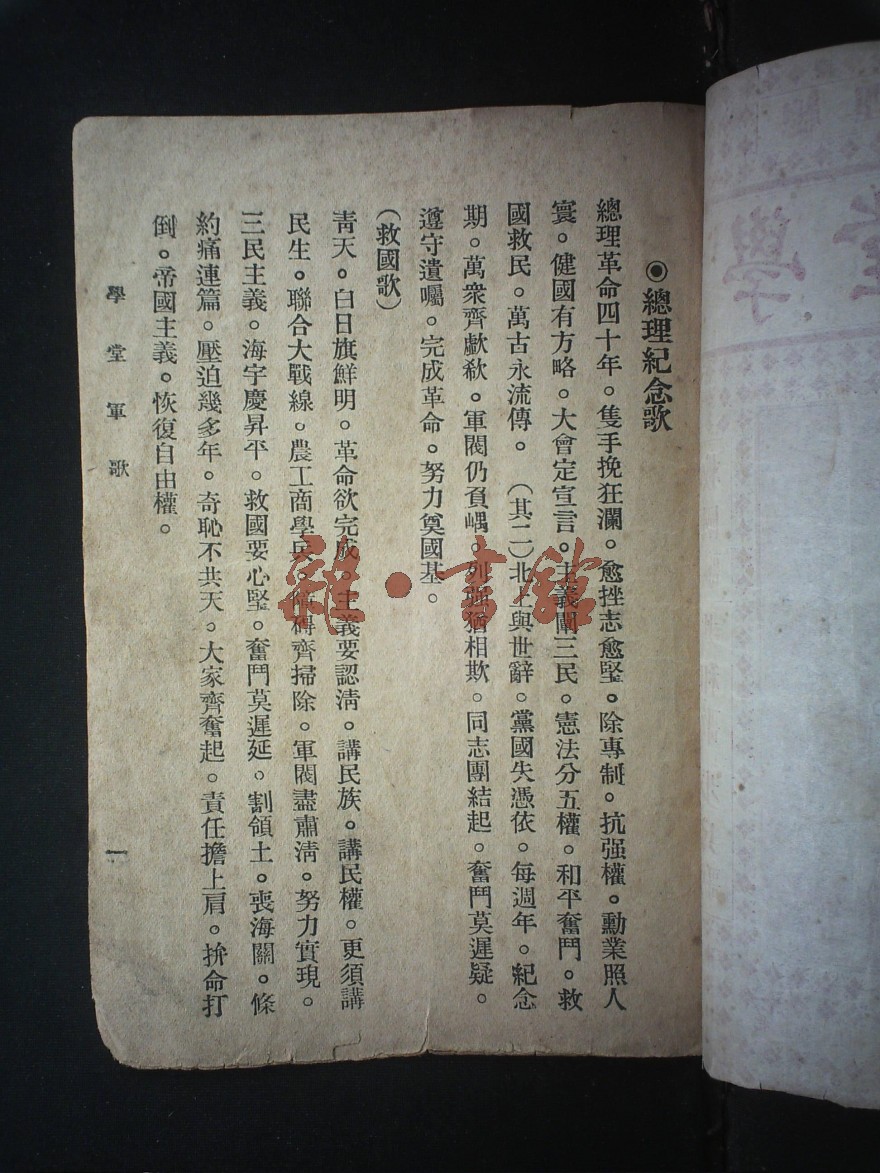 ◉總理紀念歌
總理革命四十年。隻手挽狂瀾。愈挫志愈堅。除專制。抗强權。勳業照人
寰。健國有方略。大會定宣言。主義闡三民。憲法分五權。和平奮鬥。救
國救民。萬古永流傳。(其二)北上與世辭。黨國失憑依。每週年。紀念
期。萬衆齊歔欷。軍閥仍負嵎。列強猶相欺。同志團結起。奮鬥莫遲疑。
遵守遺囑。完成革命。努力奠國基。
(救國歌)
靑天。白日旗鮮明。革命欲完成。主義要認淸。講民族。講民權。更須講
民生。聯合大戰線。農工商學兵。障碍齊掃除。軍閥盡肅淸。努力實現。
三民主義。海宇慶昇平。救國要心堅。奮鬥莫遲延。割領土。喪海關。條
約痛連篇。壓迫幾多年。奇恥不共天。大家齊奮起。責任擔上肩。拚命打
倒。帝國主義。恢復自由權。
學堂軍歌
一
雜·書館
學堂